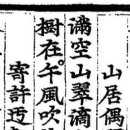 山居偶
滿空山翠滴
樹在午風吹
寄許